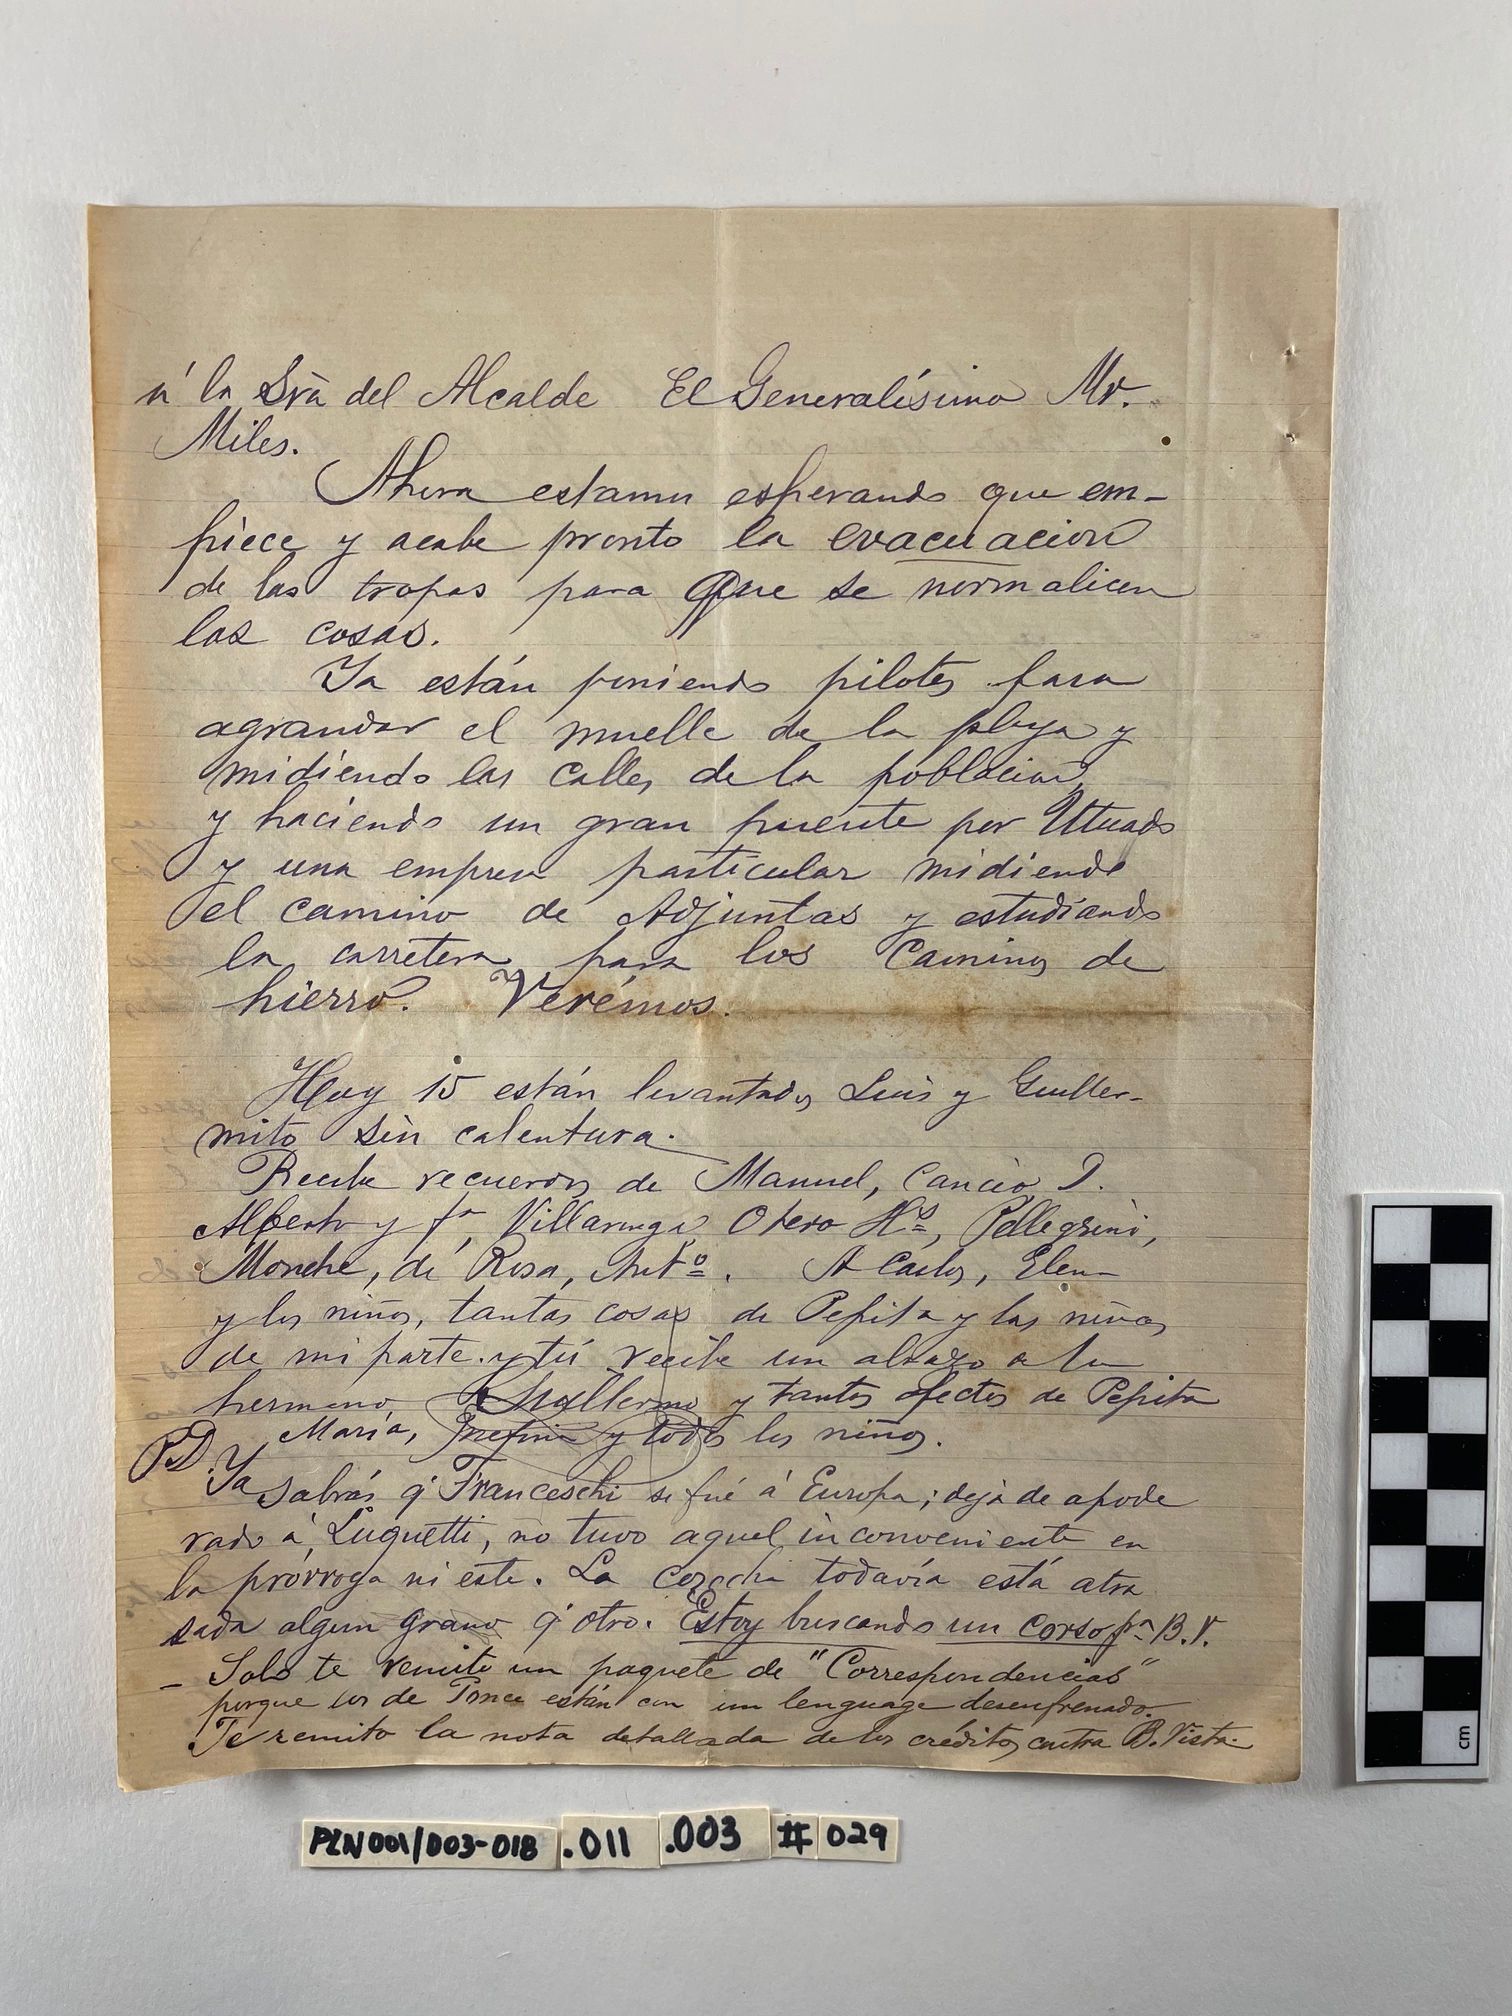 á la Sra del Alcalde El Generalísimo Mr.
Miles.
Ahora estamos esperando que em-
piece y acabe pronto la evacuacion
de las tropas para que se normalicen
las cosas.
Ya están poniendo pilotes para
agrandar el muelle de la playa y
midiendo las calles de la poblacion,
y haciendo un gran puente por Utuado
y una empresa particular midiendo
el camino de Adjuntas y estudiando
la carretera para los Caminos de
hierro. Verémos.
Hoy 15 están levantados Luis y Guiller-
mito sin calentura.
Recibe recuerdos de Manuel, Cancio, D.
Alberto y fa, Villaronga, Otero Hs, Pellegrini,
Monche, de Rosa, Anto. A Carlos, Elena
y los niños, tantas cosas de Pepita y las niñas
de mi parte y tú recibe un abrazo de tu
hermano Guillermo y tantos afectos de Pepita
María, Josefina y todos los niños.
PD. Ya sabrás q' Franceschi se fué á Europa; dejó de apode
rado á Luquetti, no tuvo aquel inconveniente en
la prórroga ni este. La cosecha todavía está atra
sada algun grano q' otro. Estoy buscando un corso pa B.V.
- Solo te remito un paquete de "Correspondencias"
porque los de Ponce están con un lenguage desenfrenado.
Te remito la nota detallada de los créditos contra B. Vista.
PLN001/003-018 .011 .003 # 029
cm